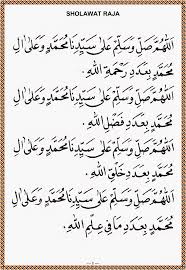 SHOLAWAT RAJA
اَللّٰهُمَّ صَلِّ وَسَلِّمْ عَلَى سَيِّدِنَا مُحَمَّدٍ وَعَلَى اٰلِ
مُحَمَّدٍ بِعَدَدِ رَحْمَةِ اللهِ.
اَللّٰهُمَّ صَلِّ وَسَلِّمْ عَلَى سَيِّدِنَا مُحَمَّدٍ وَعَلَى اٰلِ
مُحَمَّدٍ بِعَدَدِ فَضْلِ اللهِ.
اَللّٰهُمَّ صَلِّ وَسَلِّمْ عَلَى سَيِّدِنَا مُحَمَّدٍ وَعَلَى اٰلِ
مُحَمَّدٍ بِعَدَدِ خَلْقِ اللهِ.
اَللّٰهُمَّ صَلِّ وَسَلِّمْ عَلَى سَيِّدِنَا مُحَمَّدٍ وَعَلَى اٰلِ
مُحَمَّدٍ بِعَدَدِ مَا فِي عِلْمِ اللهِ.